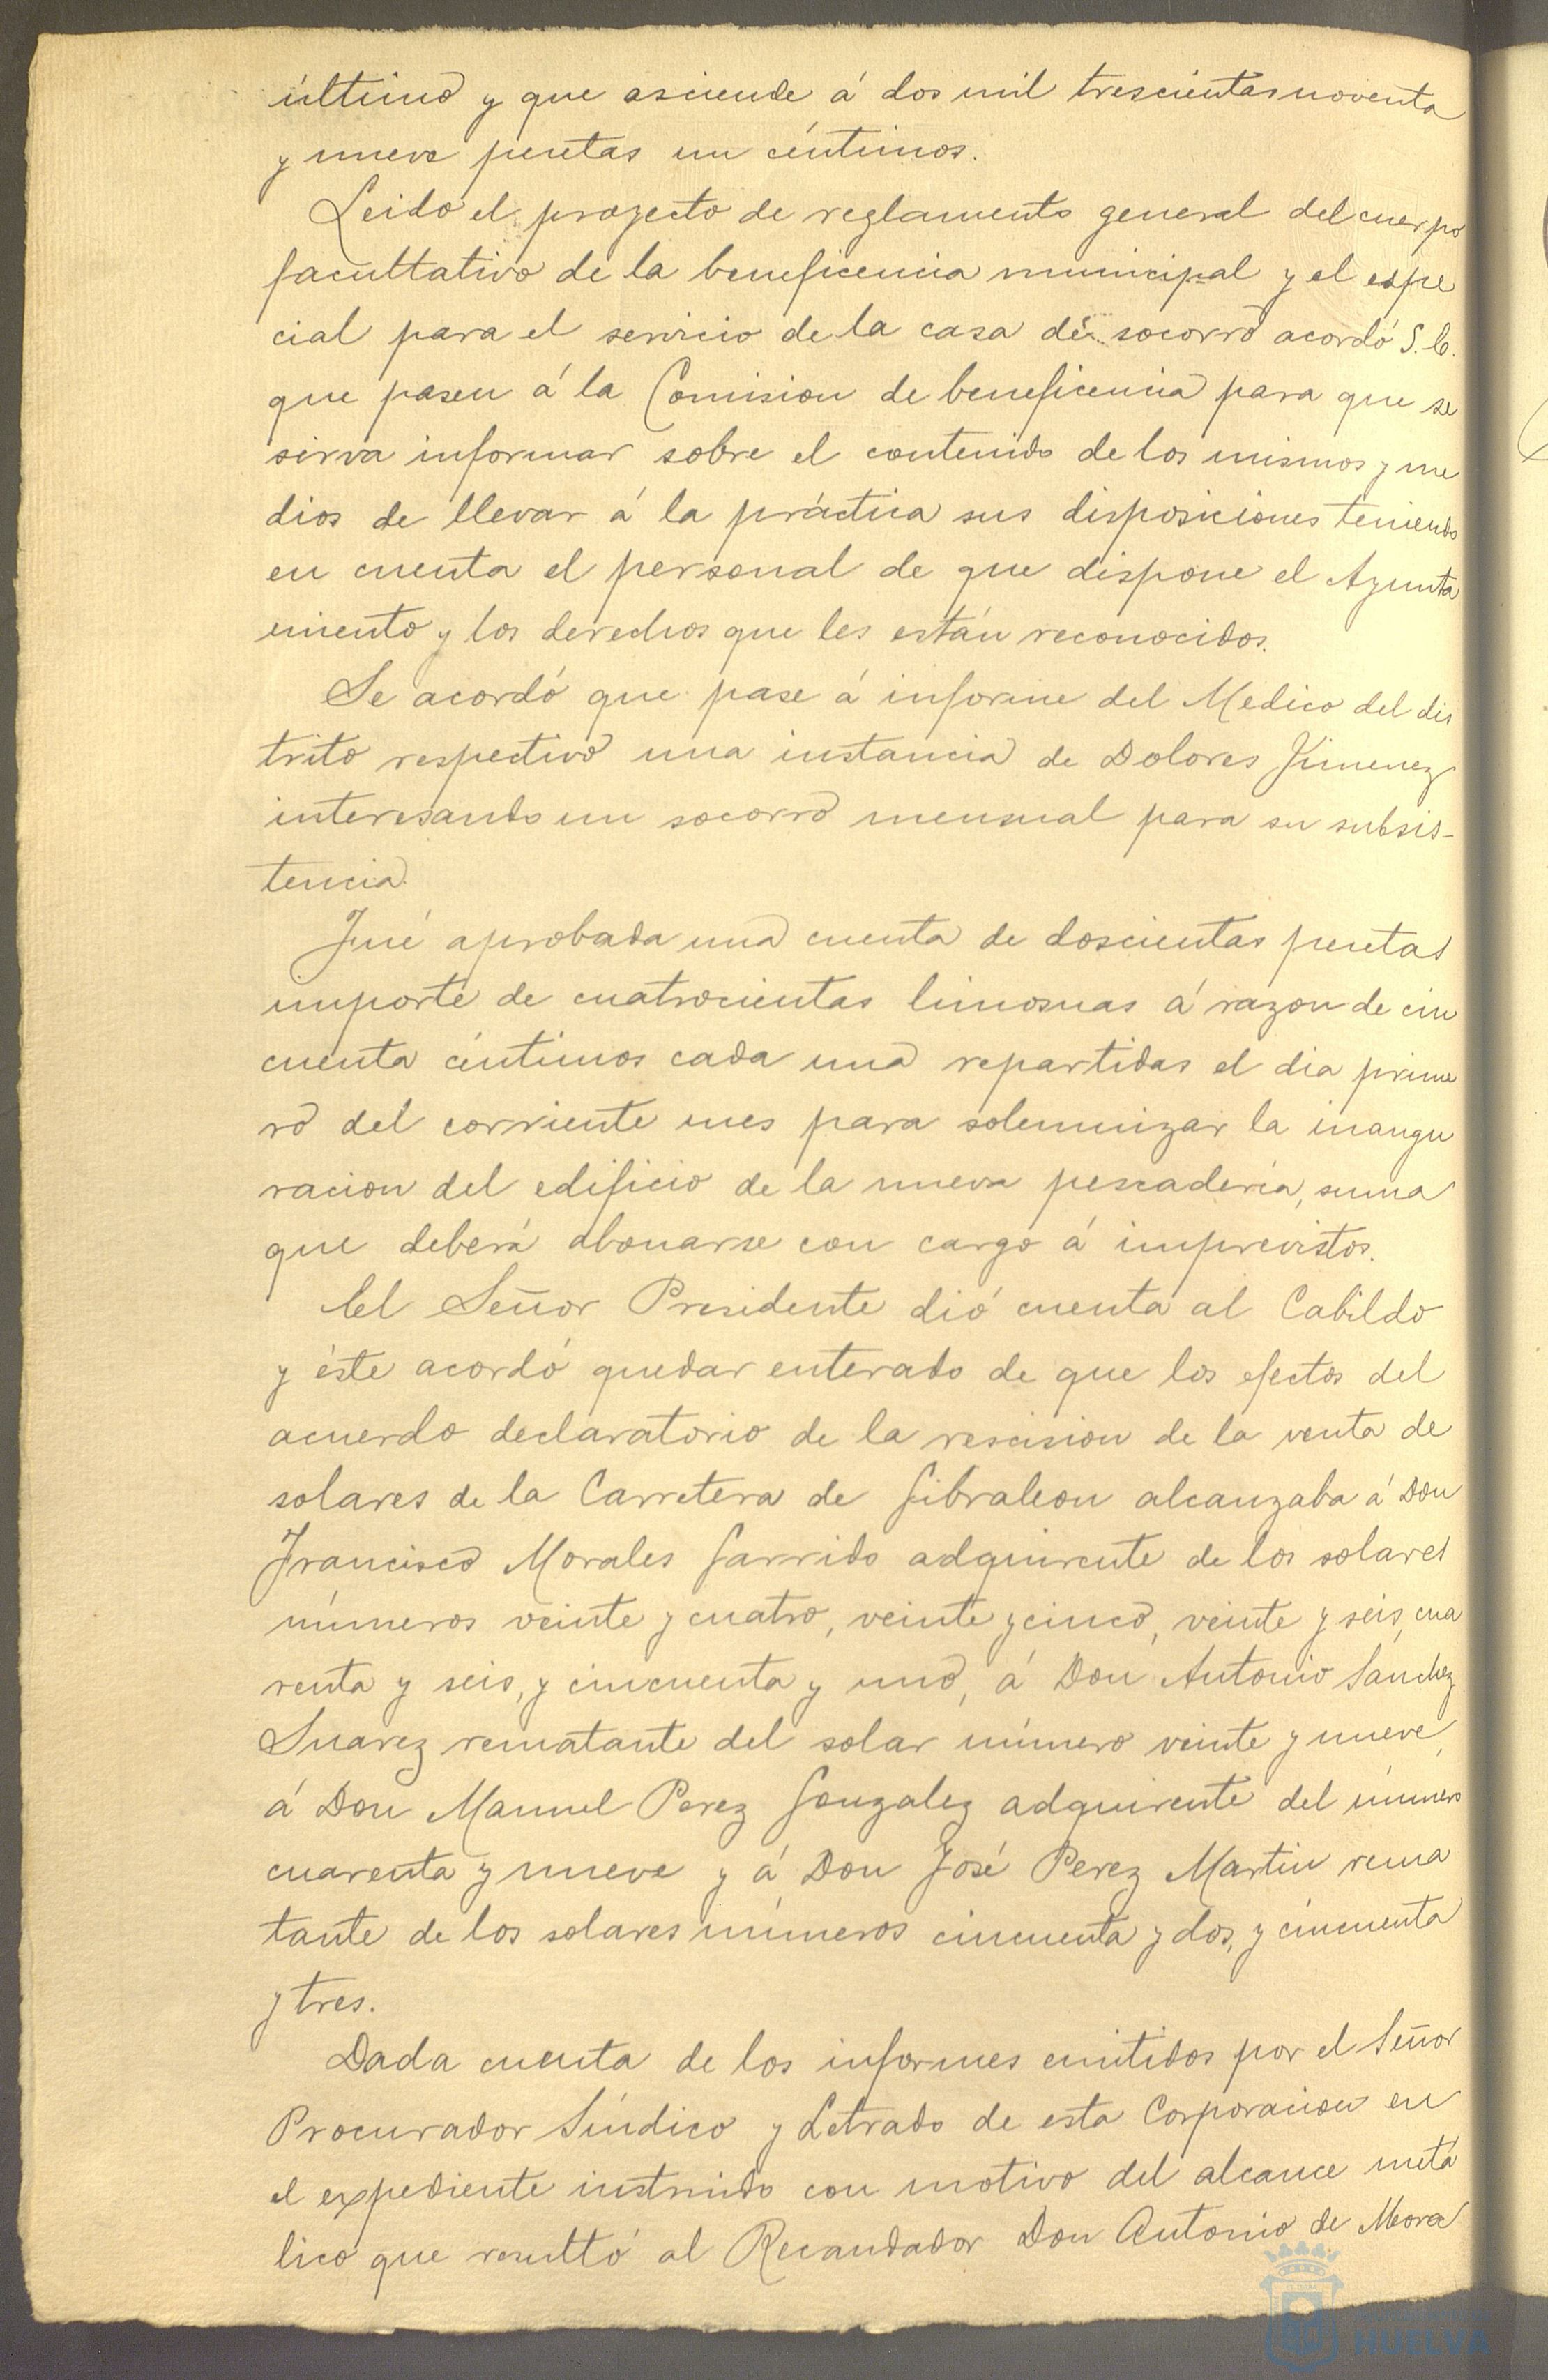 último y que asciende á dos mil trescientas noventa
y nueve pesetas un céntimos.
Leido el proyecto de reglamento general del cuerpo
facultativo de la beneficencia municipal y el espe
cial para el servicio de la casa de socorro acordó S. E.
que pasen á la Comision de beneficencia para que se
sirva informar sobre el contenido de los mismos y me
dios de llevar á la práctica sus disposiciones teniendo
en cuenta el personal de que dispone el Ayunta
miento y los derechos que les están reconocidos.
Se acordó que pase á informe del Medico del dis
trito respectivo una instancia de Dolores Jimenez
interesando un socorro mensual para su subsis-
tencia.
Fué aprobada una cuenta de doscientas pesetas
importe de cuatrocientas limosnas á razon de cin
cuenta céntimos cada una repartidas el dia prime
ro del corriente mes para solemnizar la inaugu
racion del edificio de la nueva pescadería, suma
que deberá abonarse con cargo á imprevistos.
El Señor Presidente dió cuenta al Cabildo
y éste acordó quedar enterado de que los efectos del
acuerdo declaratorio de la rescision de la venta de
solares de la Carretera de Gibraleon alcanzaba á Don
Francisco Morales Garrido adquirente de los solares
números veinte y cuatro, veinte y cinco, veinte y seis, cua
renta y seis, y cincuenta y uno, á Don Antonio Sánchez
Suarez rematante del solar número veinte y nueve,
á Don Manuel Perez Gonzalez adquirente del número
cuarenta y nueve y á Don José Perez Martin rema
tante de los solares números cincuenta y dos, y cincuenta
y tres.
Dada cuenta de los informes emitidos por el Señor
Procurador Síndico y Letrado de esta Corporacion en
el expediente instruido con motivo del alcance metá
lico que resultó al Recaudador Don Antonio de Mora
HUELVA